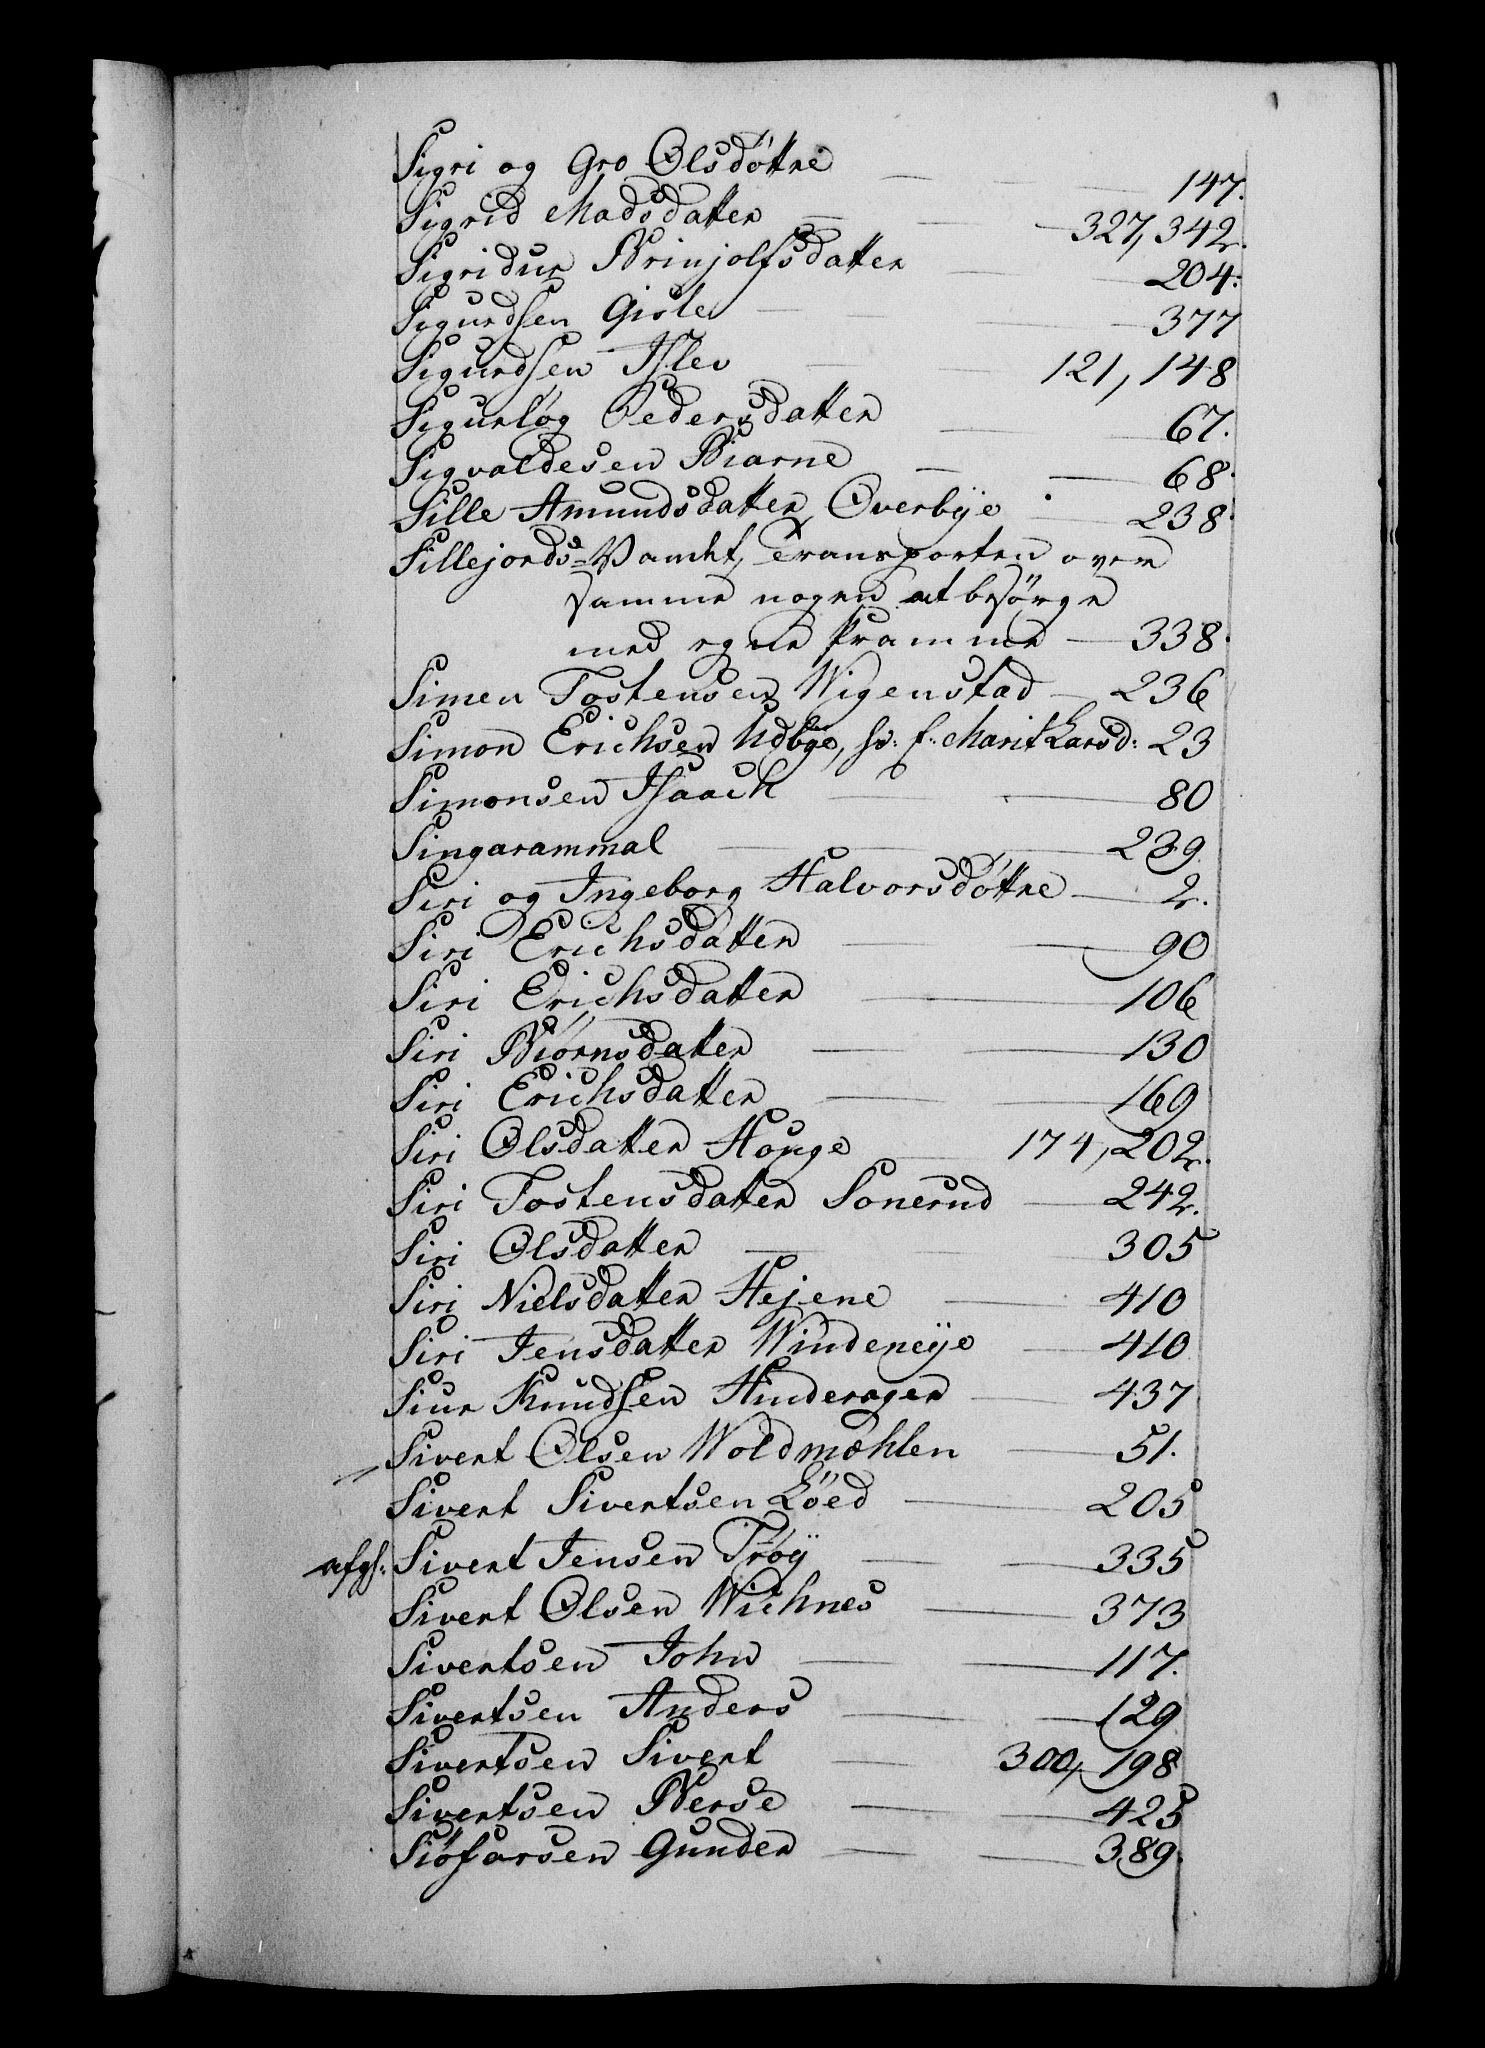 Sigri og Gro Olsdóttre — 147.
Sigrid Madsdatter — 327, 342.
Sigridur Brinjolfsdatter — 204.
Sigurdsen Gisle — 377
Sigurdsen Islev — 121, 148
Sigurlög Pedersdatter — 67.
Sigvaldesen Biarne — 68.
Sille Amundsdatter Overbye — 238.
Sillejords-Vandet, Transporten over
samme nogen at besörge
med egne Pramme — 338.
Simen Tostensen Wigenstad — 236
Simon Erichsen Udbye, sv: f: Marit Larsd: 23
Simonsen Isaach — 80
Singarammal — 239.
Siri og Ingeborg Halvorsdóttre — 2.
Siri Erichsdatter — 90
Siri Erichsdatter — 106
Siri Biórnsdatter — 130
Siri Erichsdatter — 169
Siri Olsdatter Houge — 174, 202.
Siri Tostensdatter Sonerud — 242.
Siri Olsdatter — 305
Siri Nielsdatter Hejene — 410
Siri Jensdatter Windeneye — 410
Siur Knudsen Hinderager — 437
Sivert Olsen Woldmæhlen — 51.
Sivert Sivertsen Löed — 205
afgl: Sivert Jensen Tröÿ — 335
Sivert Olsen Wichnes — 373
Sivertsen John — 117.
Sivertsen Anders — 129
Sivertsen Sivert — 300, 198
Sivertsen Berse — 425
Siöfarsen Gunder — 389.